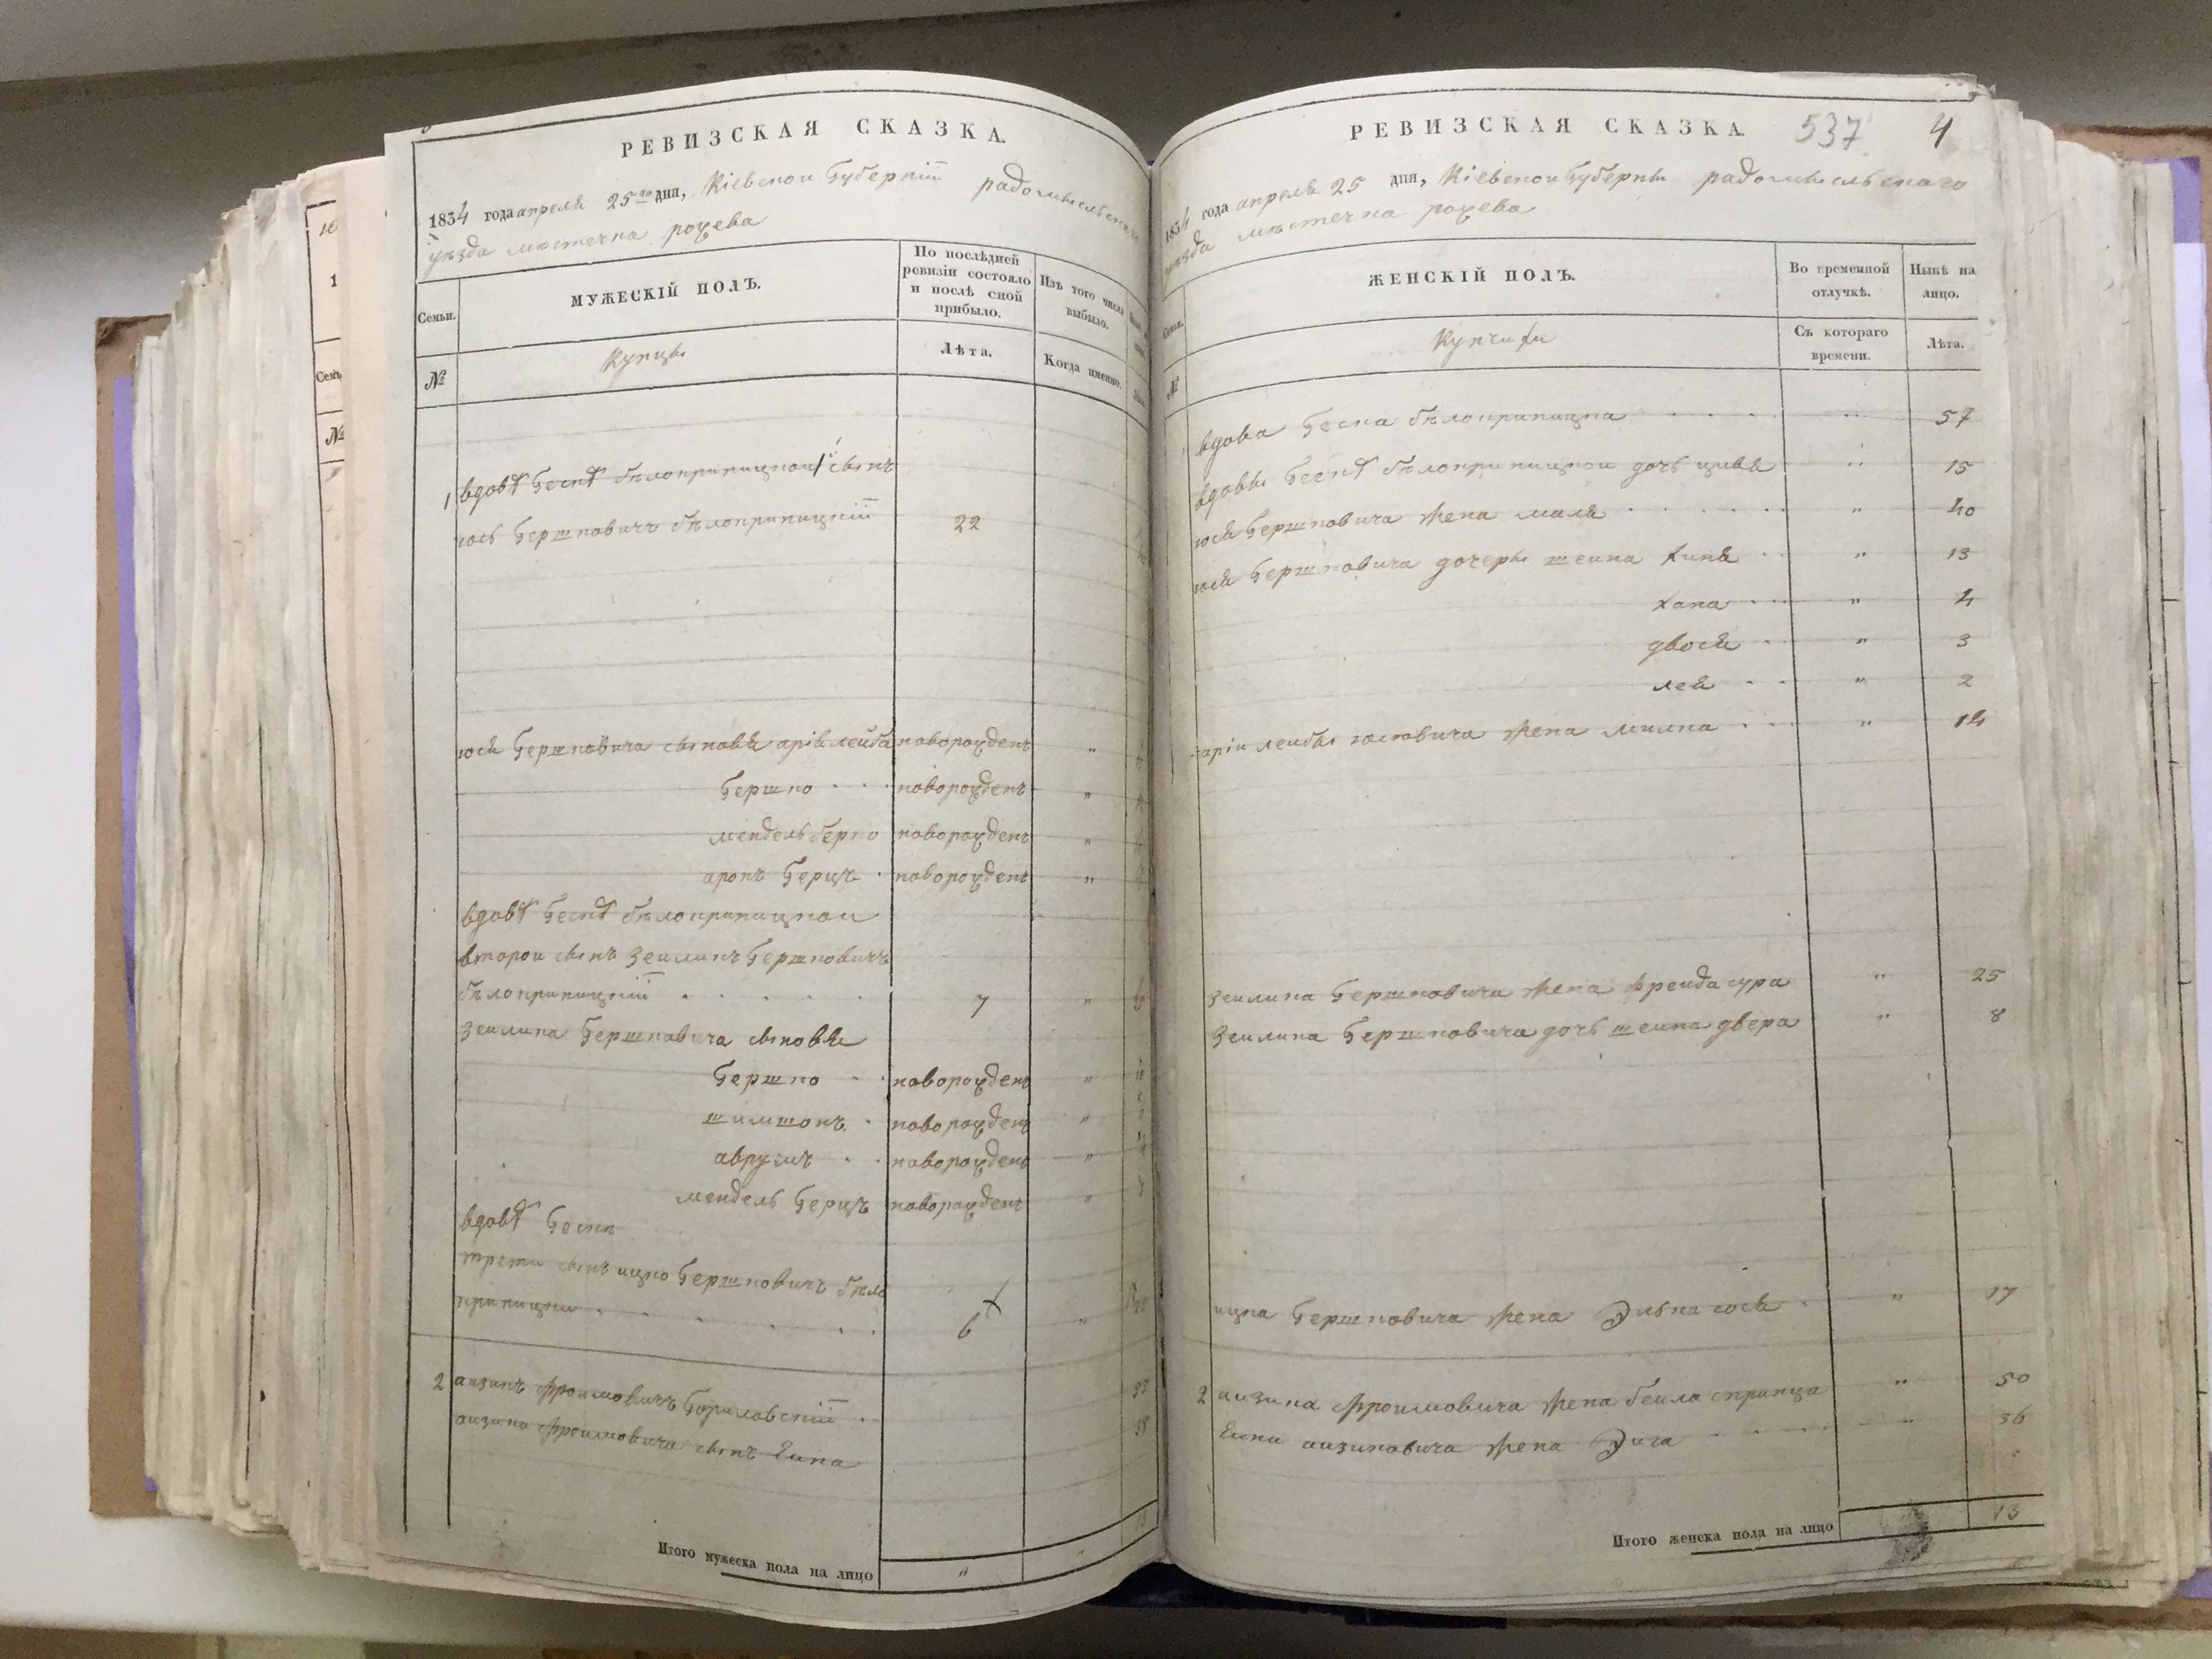 РЕВИЗСКАЯ СКАЗКА.
1834 года апреля 25го дня, Кіевской Губерніи радомысльского
уезда местечка рожева
Семьи.
МУЖЕСКІЙ ПОЛЪ.
По послѣдней ревизіи состояло и послѣ оной прибыло.
Изъ того числа выбыло.
№
Купцы
Лѣта.
Когда именно.
1 вдовы Беснѣ бѣлоприпицкой сынъ
юсь Гершковичъ бѣлоприпицкій 22
юся Гершковича сыновя арія лейба новорожденъ "
Гершко новорожденъ "
мендель берко новорожденъ "
аронъ Герцъ новорожденъ "
вдовы Беснѣ бѣлоприпицкои
второи сынъ Зеиликъ Гершковичъ
бѣлоприпицкій 7 "
Зеилика Гершковича сыновя
Гершко новорожденъ "
шимшонъ новорожденъ "
аврумъ новорожденъ "
мендель Герцъ новорожденъ "
вдовы
трети сынъ ицко Гершковичъ бѣло
припицки 6 "
2 аизикъ Фроимовичъ Гориловскій 55
аизика Фроимовича сынъ Еина 38
Итого мужеска пола на лицо "
РЕВИЗСКАЯ СКАЗКА. 537 4
1834 года апреля 25 дня, Кіевской Губерны радомысльского
уезда местечка рожева
Семьи.
ЖЕНСКІЙ ПОЛЪ.
Во временной отлучкѣ.
Нынѣ на лицо.
№
Купчихи
Съ котораго времени.
Лѣта.
вдова Бесна бѣлоприпицка 57
вдовы Беснѣ бѣлоприпицкои дочь цивя 15
юся Гершковича жена маля " 40
юся Гершковича дочеры шеина хиня " 13
хана " 4
двося " 3
лея " 2
аріи леибы юсковича жена милка " 14
Зеилика Гершковича жена фреида сура " 25
Зеилика Гершковича дочь шеина двера " 8
ицка Гершковича жена Элька " 17
2 аизика Фроимовича жена беила спринца " 50
Еини аизиковича жена " 36
Итого женска пола на лицо " 13